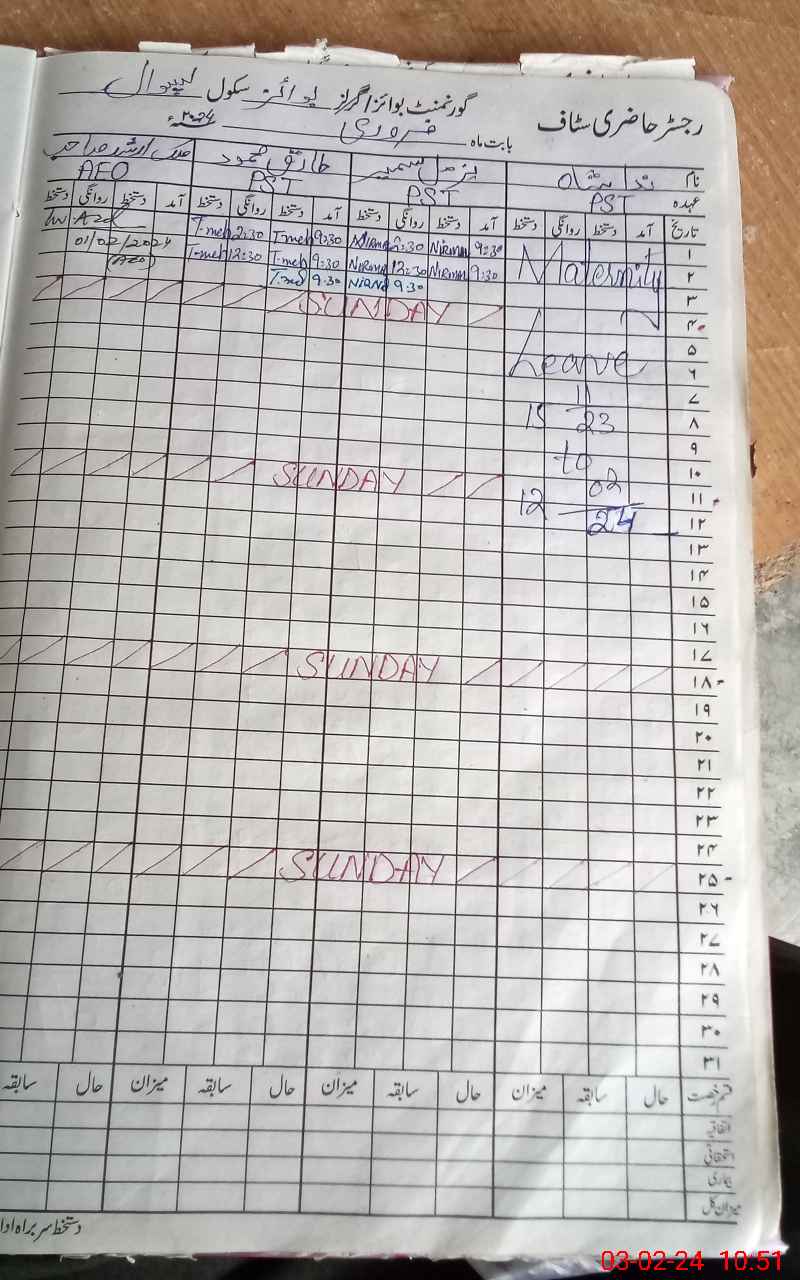 رجسٹر حاضری سٹاف گورنمنٹ بوائز/گرلز بوائز سکول لیپوال
بابت ماہ فروری ۲۰24ء
نام ندا بتول شاہ نرمل سمیر طارق محمود ملک ارشد صاحب
عہدہ PST PST PST AEO
تاریخ آمد دستخط روانگی دستخط آمد دستخط روانگی دستخط آمد دستخط روانگی دستخط آمد دستخط روانگی دستخط
۱ 9:30 Nirmal 2:30 Nirmal 9:30 T.meh 2:30 T.meh
01/02/2024
۲ Maternity 9:30 Nirmal 12:30 Nirmal 9:30 T.meh 12:30 T.meh (AEO)
۳ 9:30 9:30
۴ SUNDAY
۵
۶ Leave
۷ 11
۸ 15 23
۹ to
۱۰ 02
۱۱ SUNDAY 12
۱۲ 24
۱۳
۱۴
۱۵
۱۶
۱۷
۱۸ SUNDAY
۱۹
۲۰
۲۱
۲۲
۲۳
۲۴
۲۵ SUNDAY
۲۶
۲۷
۲۸
۲۹
۳۰
۳۱
قسم رخصت حال سابقہ میزان حال سابقہ میزان حال سابقہ میزان حال سابقہ
اتفاقیہ
استحقاقی
بیماری
میزان کل
دستخط سربراہ ادا
03-02-24 10:51